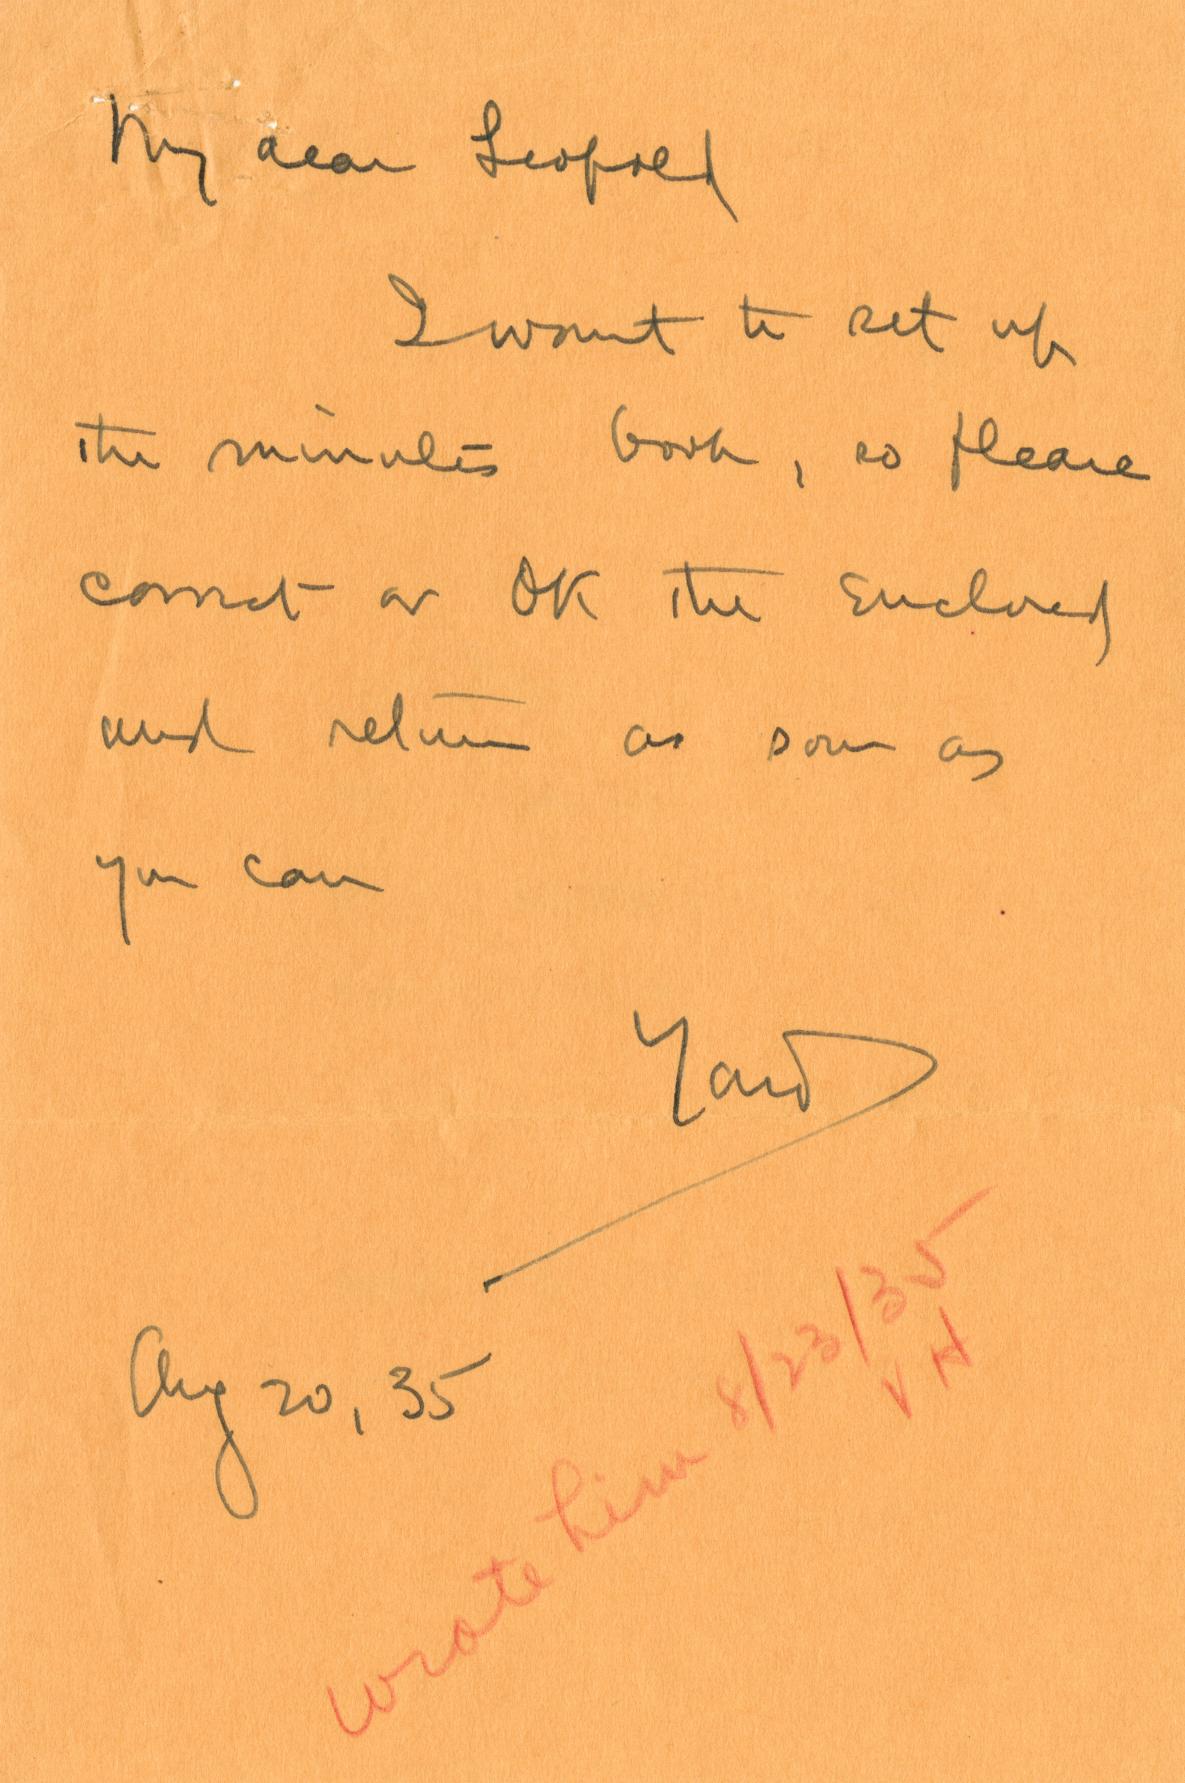 My dear Leopold
I want to set up
the minutes book, so please
correct or OK the enclosed
and return as soon as
you can
Yard
Aug 20, 35
wrote him 8/23/35
VH